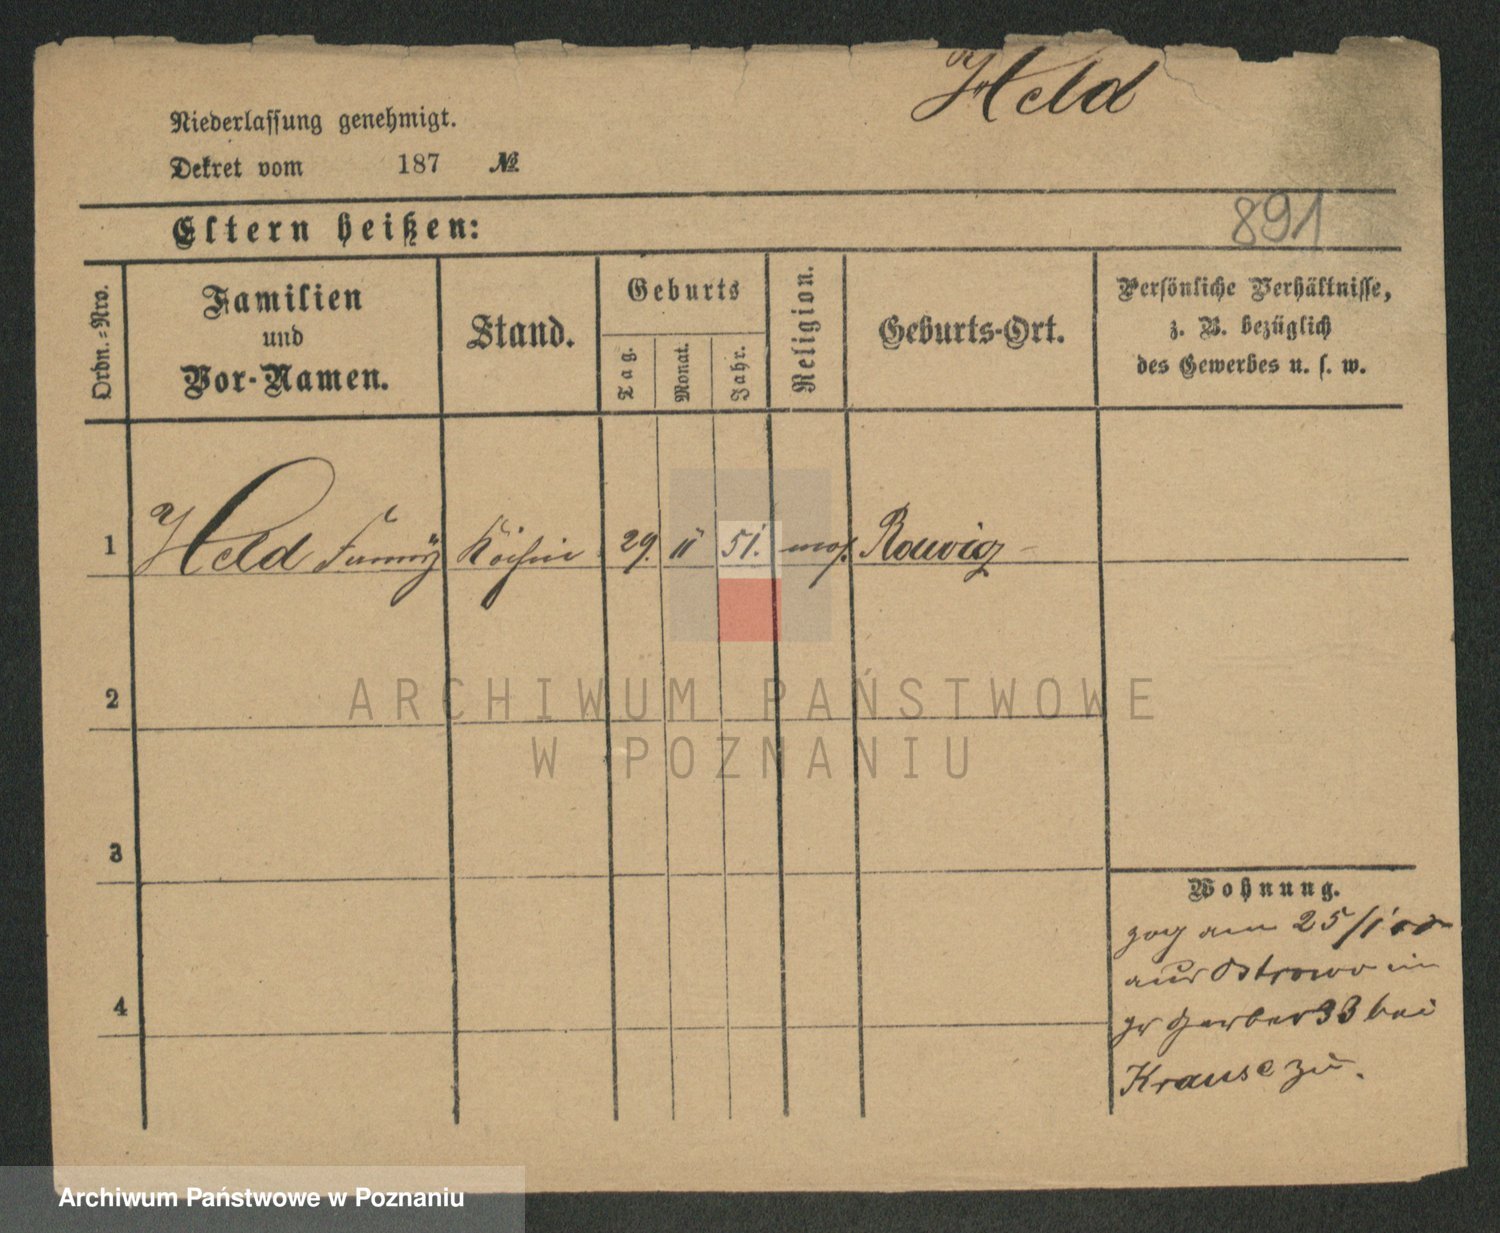 Held
Niederlassung genehmigt.
Dekret vom 187 №
891
Eltern heißen:
Ordn.-Nro.
Familien
und
Vor-Namen.
Stand.
Geburts
Tag.
Monat.
Jahr.
Religion.
Geburts-Ort.
Persönliche Verhältnisse,
z. B. bezüglich
des Gewerbes u. s. w.
1 Held Fanny Köchin 29. 11 51. mos. Rawicz
2
ARCHIWUM PAŃSTWOWE
W POZNANIU
3
Wohnung.
zog am 25/1
aus Ostrowo in
4
gr Gerber 33 bei
Krause zu.
Archiwum Państwowe w Poznaniu